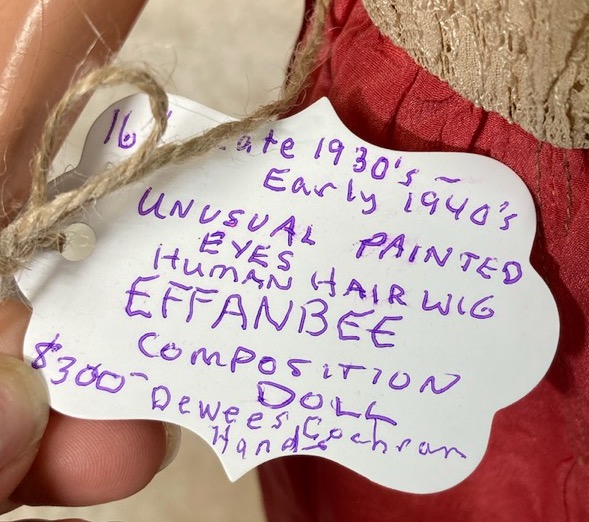 16" Late 1930's ~
Early 1940's
UNUSUAL PAINTED
EYES
HUMAN HAIR WIG
EFFANBEE
COMPOSITION
DOLL
$300- Dewees Cochran
Hands